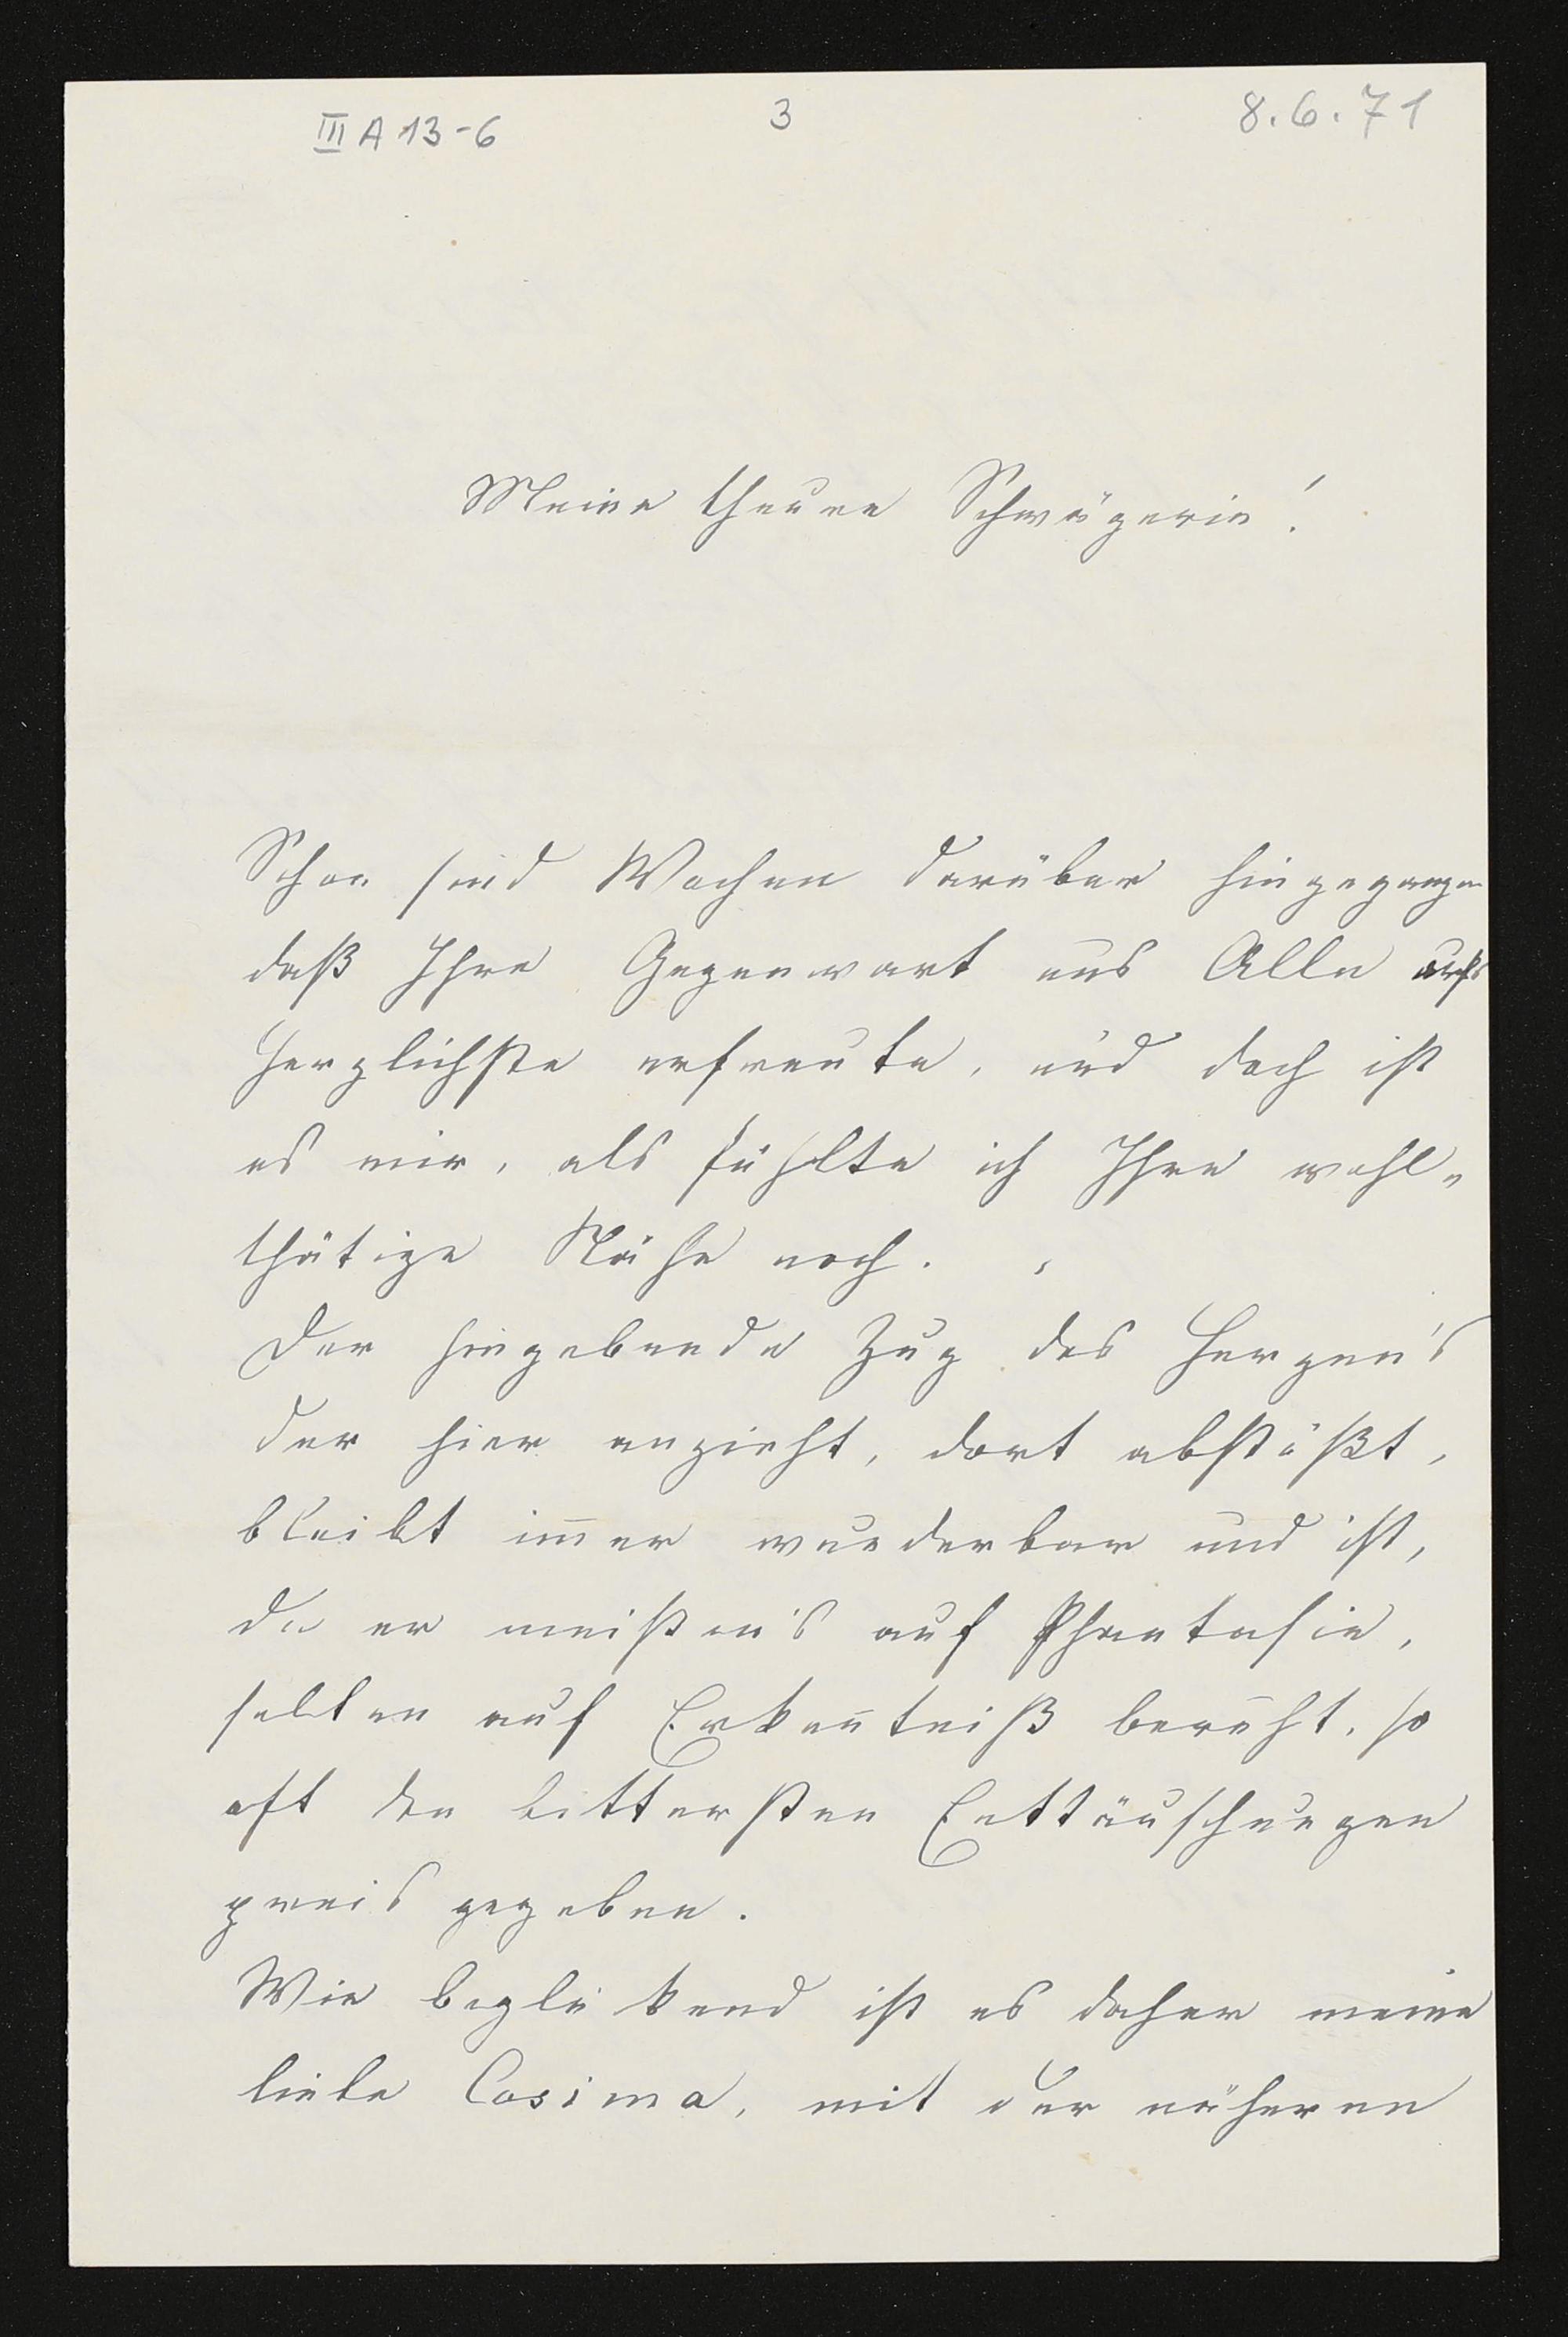 III A 13-6 3 8.6.71
Meine theure Schwägerin!
Schon sind Wochen darüber hingegangen
daß Ihre Gegenwart uns Alle aufs
Herzlichste erfreute, und doch ist
es mir, als fühlte ich Ihre wohl-
thätige Nähe noch.
Der hingebende Zug des Herzen's
der hier anzieht, dort abstößt,
bleibt im̅er wunderbar und ist,
da er meisten's auf Phantasie,
selten auf Erken̅tniß beruht, so
oft den bittersten Enttäuschungen
preis gegeben.
Wie beglükend ist es daher meine
liebe Cosima, mit der näheren